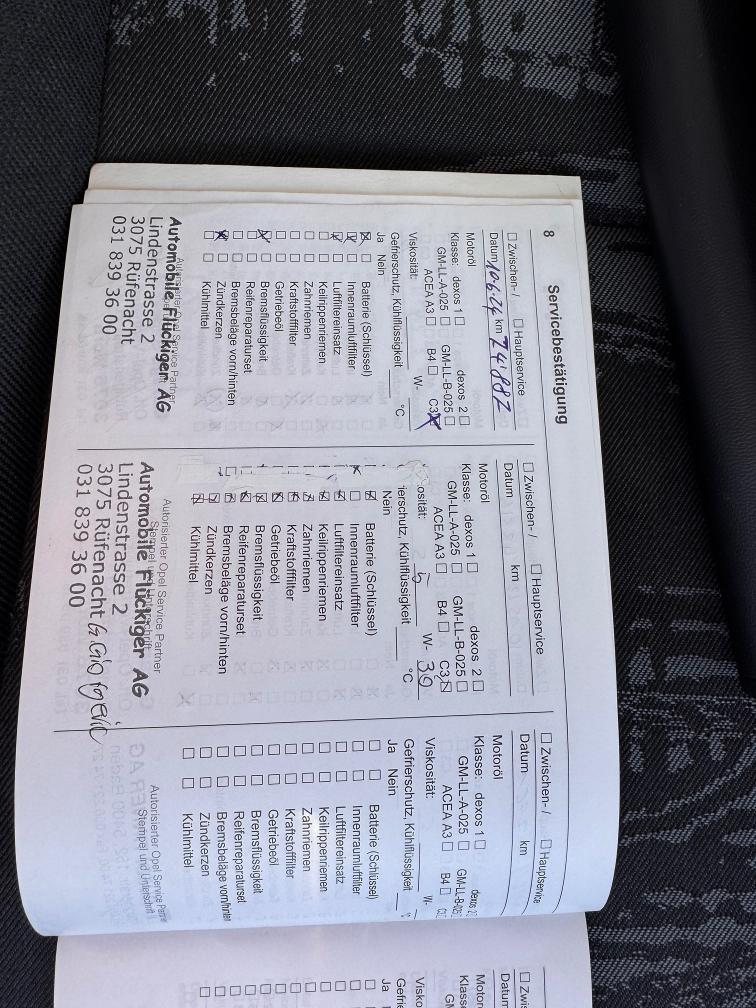 8
Servicebestätigung
Zwischen- / Hauptservice
Datum 10.6.24 km 74'882
Motoröl
Klasse: dexos 1 dexos 2
GM-LL-A-025 GM-LL-B-025
ACEA A3 B4 C3
Viskosität: W-
Gefrierschutz, Kühlflüssigkeit °C
Ja Nein
Batterie (Schlüssel)
Innenraumluftfilter
Luftfiltereinsatz
Keilrippenriemen
Zahnriemen
Kraftstofffilter
Getriebeöl
Bremsflüssigkeit
Reifenreparaturset
Bremsbeläge vorn/hinten
Zündkerzen
Kühlmittel
Autorisierter Opel Service Partner
Automobile Flückiger AG
Lindenstrasse 2
3075 Rüfenacht
031 839 36 00
Zwischen- / Hauptservice
Datum km
Motoröl
Klasse: dexos 1 dexos 2
GM-LL-A-025 GM-LL-B-025
ACEA A3 B4 C3
osität: 5 W- 30
ierschutz, Kühlflüssigkeit °C
Nein
Batterie (Schlüssel)
Innenraumluftfilter
Luftfiltereinsatz
Keilrippenriemen
Zahnriemen
Kraftstofffilter
Getriebeöl
Bremsflüssigkeit
Reifenreparaturset
Bremsbeläge vorn/hinten
Zündkerzen
Kühlmittel
Autorisierter Opel Service Partner
Stempel und Unterschrift
Automobile Flückiger AG
Lindenstrasse 2
3075 Rüfenacht
031 839 36 00
Zwischen- / Hauptservice
Datum km
Motoröl
Klasse: dexos 1 dexos 2
GM-LL-A-025 GM-LL-B-025
ACEA A3 B4
Viskosität: W-
Gefrierschutz, Kühlflüssigkeit
Ja Nein
Batterie (Schlüssel)
Innenraumluftfilter
Luftfiltereinsatz
Keilrippenriemen
Zahnriemen
Kraftstofffilter
Getriebeöl
Bremsflüssigkeit
Reifenreparaturset
Bremsbeläge vorn/hinten
Zündkerzen
Kühlmittel
Autorisierter Opel Service Partne
Stempel und Unterschrift
Zwi
Datum
Motor
Klass
GM
Visko
Gefrie
Ja